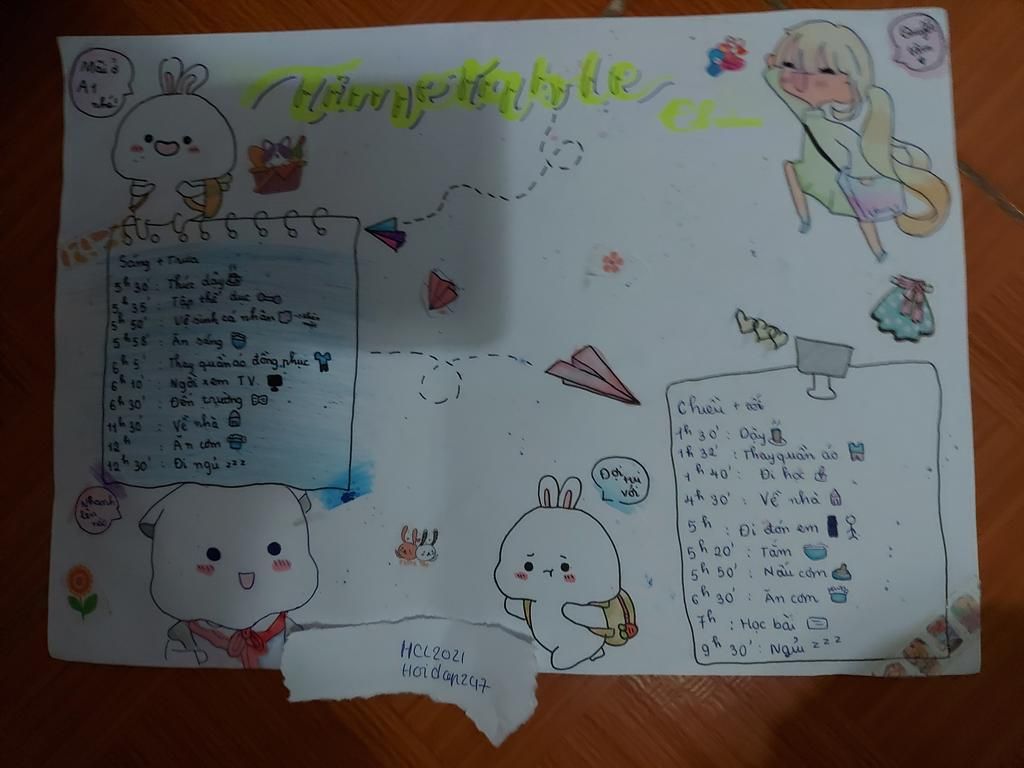 Mãi ở
A1
nhé!
Timetable
Sáng + Trưa
5h 30' : Thức dậy
5h 35' : Tập thể dục
5h 50' : Vệ sinh cá nhân
5h 58' : Ăn sáng
6h 5' : Thay quần áo đồng phục
6h 10' : Ngồi xem TV
6h 30' : Đến trường
11h 30' : Về nhà
12h : Ăn cơm
12h 30' : Đi ngủ zzz
Nhanh
lên
nào
Đợi tui
với
Chiều + tối
1h 30' : Dậy
1h 32' : Thay quần áo
1h 40' : Đi học
4h 30' : Về nhà
5h : Đi đón em
5h 20' : Tắm
5h 50' : Nấu cơm
6h 30' : Ăn cơm
7h : Học bài
9h 30' : Ngủ zzz
HCL2021
Hoidap247